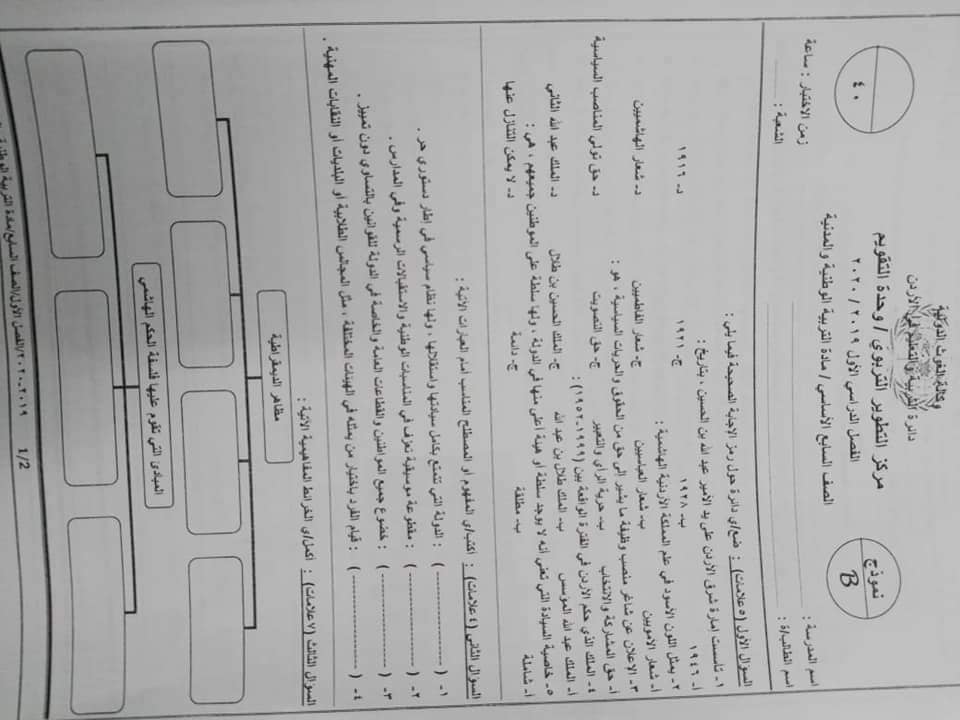 وكالة الغوث الدولية
دائرة التربية والتعليم في الأردن
مركز التطوير التربوي / وحدة التقويم
الفصل الدراسي الأول ٢٠١٩ / ٢٠٢٠
الصف السابع الأساسي / مادة التربية الوطنية والمدنية
نموذج
B
٤٠
اسم المدرسة :
زمن الاختبار : ساعة
اسم الطالب/ة :
الشعبة :
السؤال الأول (٥ علامات) : ضع/ي دائرة حول رمز الإجابة الصحيحة فيما يلي :
١- تأسست إمارة شرق الأردن على يد الأمير عبد الله بن الحسين ، بتاريخ :
أ- ١٩٤٦ ب- ١٩٢٨ ج- ١٩٢١ د- ١٩١٦
٢- يمثل اللون الأسود في علم المملكة الأردنية الهاشمية :
أ- شعار الأمويين ب- شعار العباسيين ج- شعار الفاطميين د- شعار الهاشميين
٣- الإعلان عن شاغر منصب وظيفة ما يشير إلى حق من الحقوق والحريات السياسية ، هو :
أ- حق المشاركة والانتخاب ب- حرية الرأي والتعبير ج- حق التصويت د- حق تولي المناصب السياسية
٤- الملك الذي حكم الأردن في الفترة الواقعة بين (١٩٩٩-١٩٥٢) :
أ- الملك عبد الله المؤسس ب- الملك طلال بن عبد الله ج- الملك الحسين بن طلال د- الملك عبد الله الثاني
٥- خاصية السيادة التي تعني أنه لا يوجد سلطة أو هيئة أعلى منها في الدولة ، ولها سلطة على المواطنين جميعهم ، هي :
أ- شاملة ب- مطلقة ج- دائمة د- لا يمكن التنازل عنها
السؤال الثاني (٤ علامات) : اكتب/ي المفهوم أو المصطلح المناسب أمام العبارات الآتية :
١- ( ------------------ ) : الدولة التي تتمتع بكامل سيادتها واستقلالها ، ولها نظام سياسي في إطار دستوري حر .
٢- ( ------------------ ) : مقطوعة موسيقية تعزف في المناسبات الوطنية والاستقبالات الرسمية وفي المدارس .
٣- ( ------------------ ) : خضوع جميع المواطنين والقطاعات العامة والخاصة في الدولة للقوانين بالتساوي دون تمييز .
٤- ( ------------------ ) : قيام الفرد باختيار من يمثله في الهيئات المختلفة ، مثل المجالس الطلابية أو البلديات أو النقابات المهنية .
السؤال الثالث (٧ علامات) : أكمل/ي الخرائط المفاهيمية الآتية :
مظاهر الديمقراطية
المبادئ التي تقوم عليها فلسفة الحكم الهاشمي
1/2 ٢٠١٩-٢٠٢٠/الفصل الأول/الصف السابع/مادة التربية الوطنية